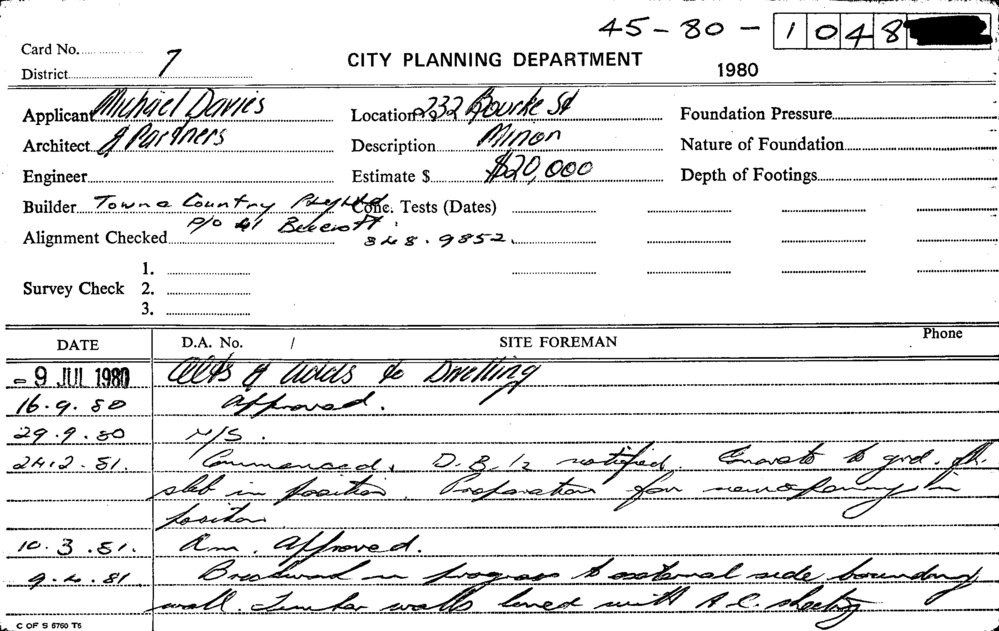 45-80-1048
Card No.
District 7
CITY PLANNING DEPARTMENT
1980
Applicant Michael Davies
Location 232 Bourke St
Foundation Pressure
Architect & Partners
Description Minor
Nature of Foundation
Engineer
Estimate $ $20,000
Depth of Footings
Builder Town & Country Pty Ltd
Conc. Tests (Dates)
P/O 41 Beecroft.
Alignment Checked
848.9852.
1.
Survey Check 2.
3.
DATE D.A. No. / SITE FOREMAN Phone
- 9 JUL 1980 Alts & Adds to Dwelling
16.9.80 Approved.
29.9.80 N/S.
24.2.81. Commenced. D.B.I. notified. Concrete to grd. fl.
slab in position. Preparation for new opening in
position
10.3.81. Am. Approved.
9.4.81 Brickwork in progress to external side boundary
wall. Timber walls lined with A.C. sheeting
C OF S 5760 T5